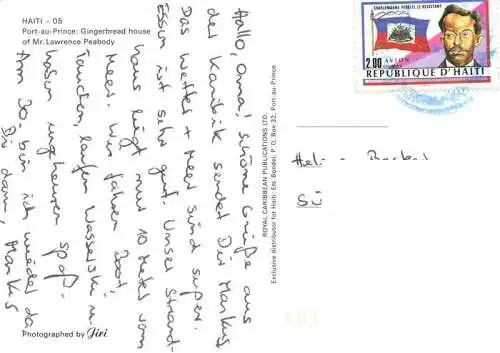 HAITI – 05
Port-au-Prince: Gingerbread house
of Mr. Lawrence Peabody
Hallo, Oma! Schöne Grüße aus
der Karibik sendet Dir Markus
Das Wetter + Meer sind super.
Essen ist sehr gut. Unser Strand-
haus liegt nur 10 Meter vom
Meer. Wir fahren Boot,
Tauchen, laufen Wasserski u.
haben ungeheuren Spaß.
Am 30. bin ich wieder da
Bis dann, Markus
Photographed by Jivi
ROYAL CARIBBEAN PUBLICATIONS LTD.
Exclusive distributor for Haiti: Ets. Bondel, P. O. Box 32, Port-au-Prince
CHARLEMAGNE PERALTE LE RESISTANT
2.00 AVION
REPUBLIQUE D'HAITI